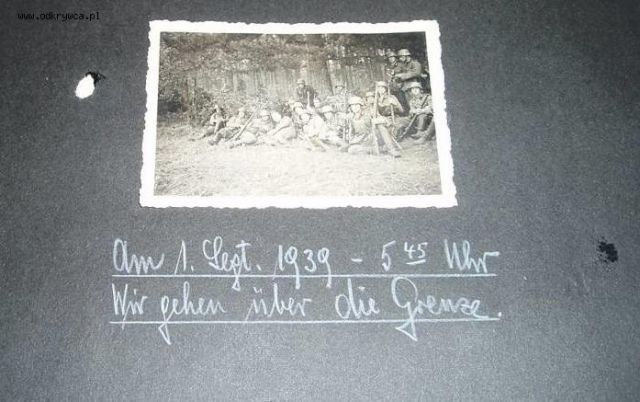 www.odkrywca.pl
Am 1. Sept. 1939 - 5 45 Uhr
Wir gehen über die Grenze.